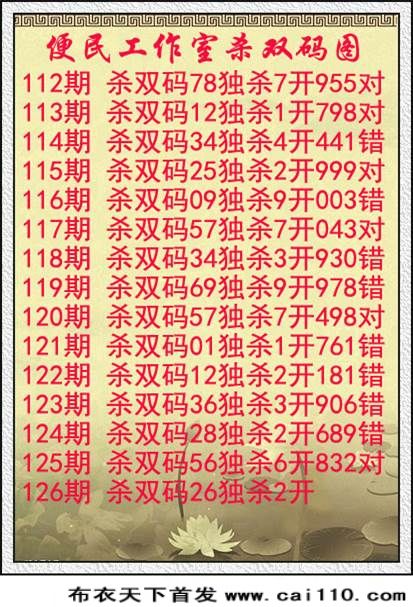 便民工作室杀双码图
112期 杀双码78独杀7开955对
113期 杀双码12独杀1开798对
114期 杀双码34独杀4开441错
115期 杀双码25独杀2开999对
116期 杀双码09独杀9开003错
117期 杀双码57独杀7开043对
118期 杀双码34独杀3开930错
119期 杀双码69独杀9开978错
120期 杀双码57独杀7开498对
121期 杀双码01独杀1开761错
122期 杀双码12独杀2开181错
123期 杀双码36独杀3开906错
124期 杀双码28独杀2开689错
125期 杀双码56独杀6开832对
126期 杀双码26独杀2开
布衣天下首发 www.cai110.com